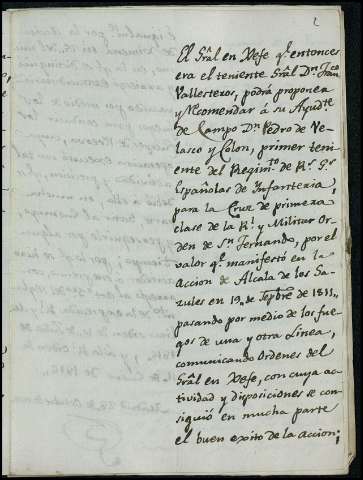 2
El Grãl en Xefe q.e entonces
era el teniente Grãl D.n Fran.co
Vallesteros, podrá proponer
y Recomendar á su Ayud.te
de Campo D.n Pedro de Ve-
lasco y Colon, primer teni-
ente del Regim.to de R.s G.s
Españolas de Infanteria,
para la Cruz de primera
clase de la R.l y Militar Or-
den de S.n Fernando, por el
valor q.e manifestó en la
Accion de Alcala de los Ga-
zules en 19,, de Sepbre de 1811,,
pasando por medio de los fue-
gos de una y otra Linea,
comunicando Ordenes del
Grãl en Xefe, con cuya ac-
tividad y disposiciones se con-
siguió en mucha parte
el buen exito de la accion;